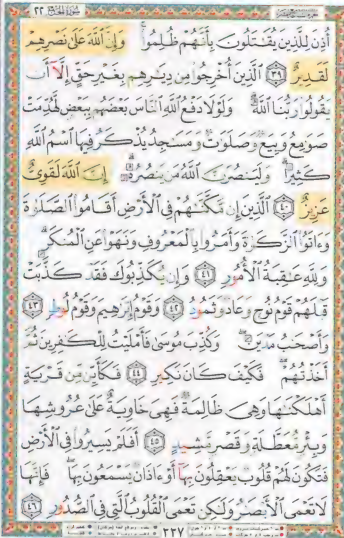 سُورَةُ الحَجِّ ٢٢
أُذِنَ لِلَّذِينَ يُقَـٰتَلُونَ بِأَنَّهُمْ ظُلِمُوا۟ ۚ وَإِنَّ ٱللَّهَ عَلَىٰ نَصْرِهِمْ
لَقَدِيرٌ ٣٩ ٱلَّذِينَ أُخْرِجُوا۟ مِن دِيَـٰرِهِم بِغَيْرِ حَقٍّ إِلَّآ أَن
يَقُولُوا۟ رَبُّنَا ٱللَّهُ ۗ وَلَوْلَا دَفْعُ ٱللَّهِ ٱلنَّاسَ بَعْضَهُم بِبَعْضٍ لَّهُدِّمَتْ
صَوَٰمِعُ وَبِيَعٌ وَصَلَوَٰتٌ وَمَسَـٰجِدُ يُذْكَرُ فِيهَا ٱسْمُ ٱللَّهِ
كَثِيرًا ۗ وَلَيَنصُرَنَّ ٱللَّهُ مَن يَنصُرُهُۥٓ ۗ إِنَّ ٱللَّهَ لَقَوِىٌّ
عَزِيزٌ ٤٠ ٱلَّذِينَ إِن مَّكَّنَّـٰهُمْ فِى ٱلْأَرْضِ أَقَامُوا۟ ٱلصَّلَوٰةَ
وَءَاتَوُا۟ ٱلزَّكَوٰةَ وَأَمَرُوا۟ بِٱلْمَعْرُوفِ وَنَهَوْا۟ عَنِ ٱلْمُنكَرِ ۗ
وَلِلَّهِ عَـٰقِبَةُ ٱلْأُمُورِ ٤١ وَإِن يُكَذِّبُوكَ فَقَدْ كَذَّبَتْ
قَبْلَهُمْ قَوْمُ نُوحٍ وَعَادٌ وَثَمُودُ ٤٢ وَقَوْمُ إِبْرَٰهِيمَ وَقَوْمُ لُوطٍ ٤٣
وَأَصْحَـٰبُ مَدْيَنَ ۖ وَكُذِّبَ مُوسَىٰ فَأَمْلَيْتُ لِلْكَـٰفِرِينَ ثُمَّ
أَخَذْتُهُمْ ۖ فَكَيْفَ كَانَ نَكِيرِ ٤٤ فَكَأَيِّن مِّن قَرْيَةٍ
أَهْلَكْنَـٰهَا وَهِىَ ظَالِمَةٌ فَهِىَ خَاوِيَةٌ عَلَىٰ عُرُوشِهَا
وَبِئْرٍ مُّعَطَّلَةٍ وَقَصْرٍ مَّشِيدٍ ٤٥ أَفَلَمْ يَسِيرُوا۟ فِى ٱلْأَرْضِ
فَتَكُونَ لَهُمْ قُلُوبٌ يَعْقِلُونَ بِهَآ أَوْ ءَاذَانٌ يَسْمَعُونَ بِهَا ۖ فَإِنَّهَا
لَا تَعْمَى ٱلْأَبْصَـٰرُ وَلَـٰكِن تَعْمَى ٱلْقُلُوبُ ٱلَّتِى فِى ٱلصُّدُورِ ٤٦
٣٣٧